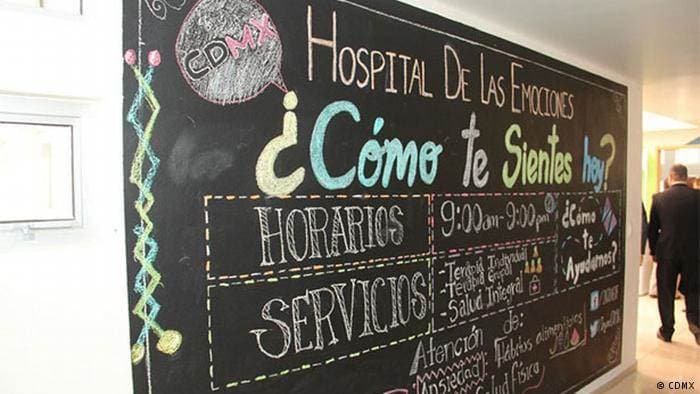 CDMX
HOSPITAL DE LAS EMOCIONES
¿Cómo te Sientes hoy?
HORARIOS
9:00am-9:00pm
¿Cómo
te
Ayudamos?
SERVICIOS
-Terapia Individual
-Terapia Grupal
-Salud Integral
Atención de:
Ansiedad: Hábitos alimenticios
Salud física
© CDMX